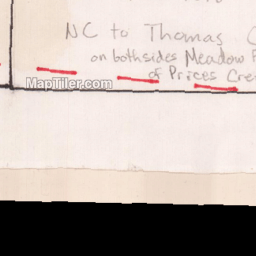 NC to Thomas
on bothsides Meadow
of Prices Cre
MapTiler.com